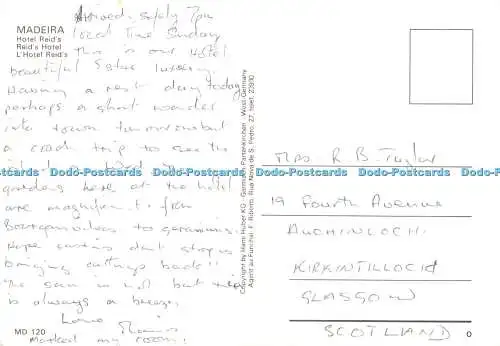 MADEIRA
Hotel Reid's
Reid's Hotel
L'Hotel Reid's
Arrived safely 7pm
local time Sunday
This is our Hotel
beautiful 5 star luxury.
Having a rest day today
perhaps a short wander
into town tomorrow but
a coach trip to see the
gardens here at the hotel
are magnificent. from
Bougainvillea to geraniums.
Hope customs dont stop us
bringing cuttings back!!
The sun is hot but there
is always a breeze.
Love
Marked my room!
MD 120
Copyright by Hans Huber KG - Garmisch-Partenkirchen - West Germany
Agent au Funchal: F. Ribeiro, Rua Nova de S. Pedro, 27, telef. 23910
Mrs R. B. Taylor
19 Fourth Avenue
AUCHINLOCH
KIRKINTILLOCH
GLASGOW
SCOTLAND
0
Dodo-Postcards Dodo-Postcards Dodo-Postcards Dodo-Postcards Dodo-Postcards